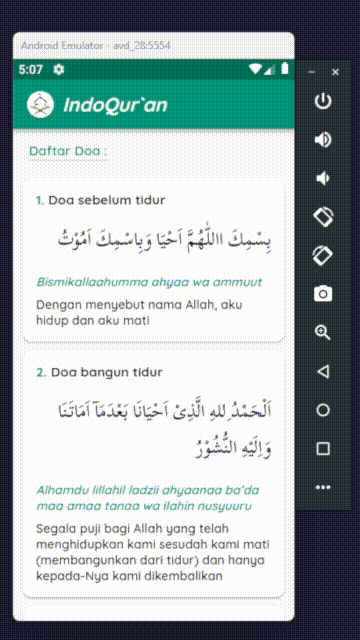 Android Emulator - avd_28:5554
5:07
IndoQur`an
Daftar Doa :
1. Doa sebelum tidur
بِسْمِكَ االلّٰهُمَّ اَحْيَا وَبِاسْمِكَ اَمُوْتُ
Bismikallaahumma ahyaa wa ammuut
Dengan menyebut nama Allah, aku
hidup dan aku mati
2. Doa bangun tidur
اَلْحَمْدُ ِللهِ الَّذِىْ اَحْيَانَا بَعْدَمَآ اَمَاتَنَا
وَاِلَيْهِ النُّشُوْرُ
Alhamdu lillahil ladzii ahyaanaa ba'da
maa amaa tanaa wa ilahin nusyuuru
Segala puji bagi Allah yang telah
menghidupkan kami sesudah kami mati
(membangunkan dari tidur) dan hanya
kepada-Nya kami dikembalikan